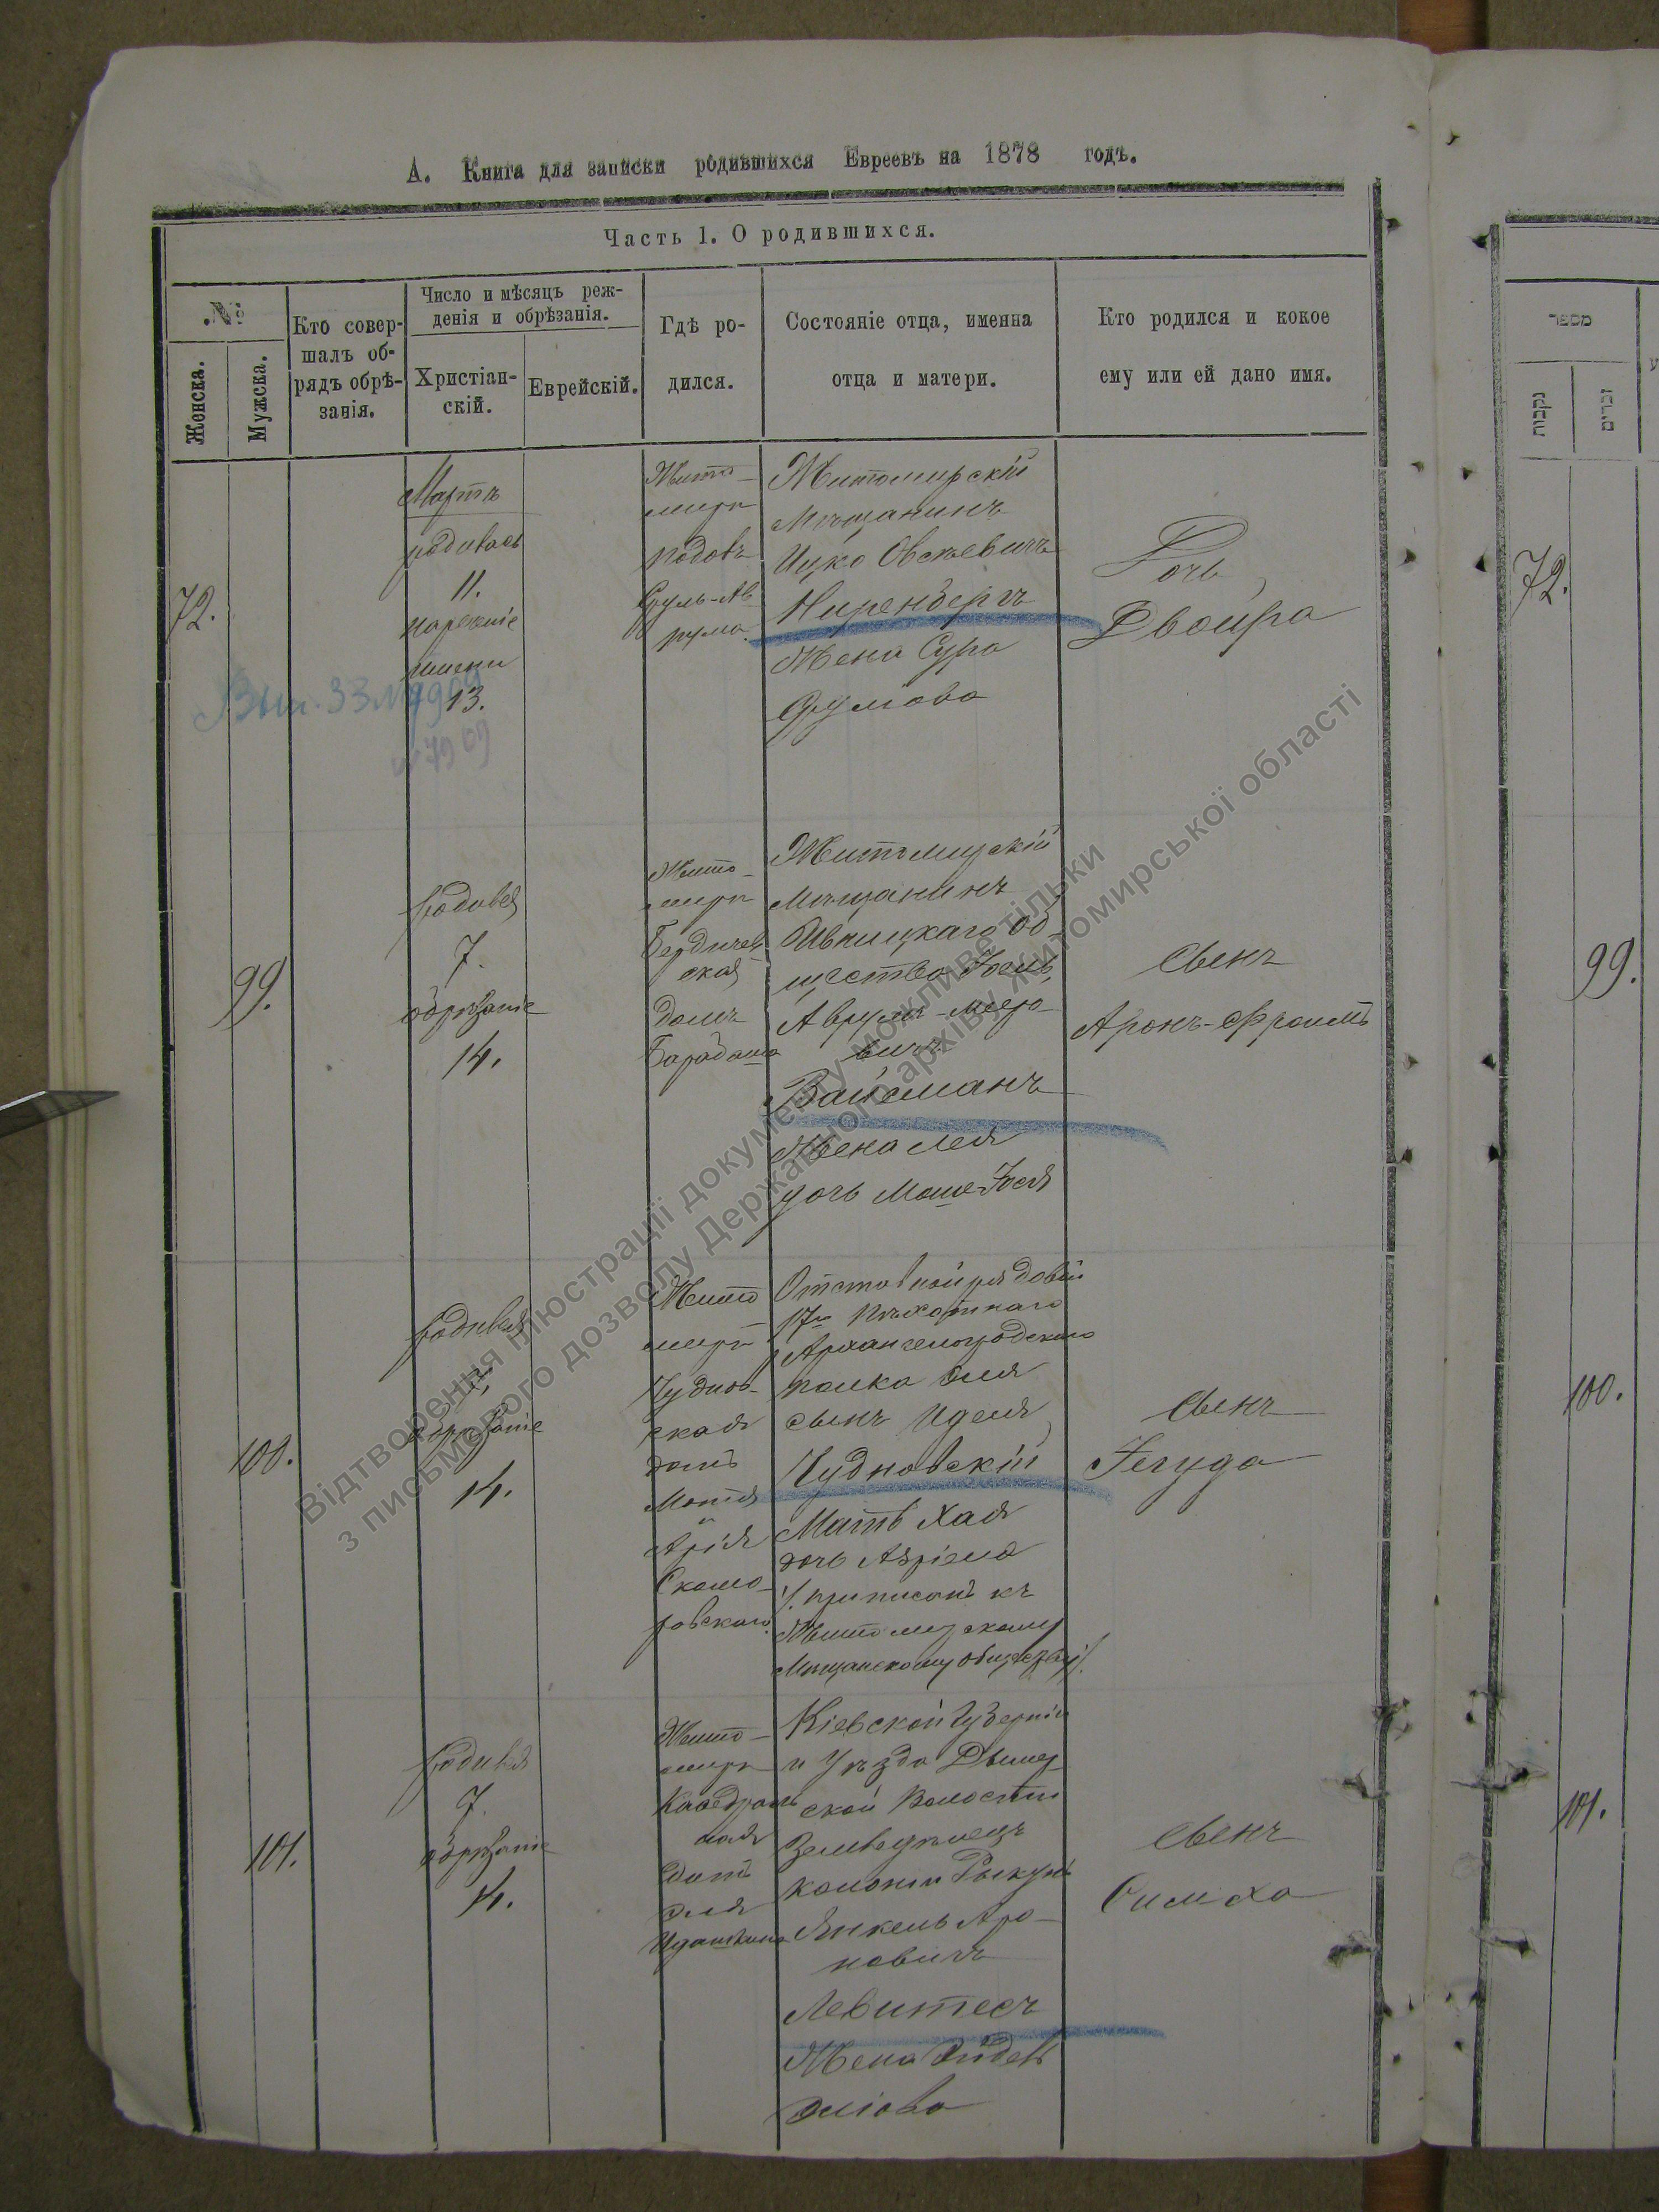 А. Книга для записки родившихся Евреевъ на 1878 годъ.
Часть 1. О родившихся.
№
Женска.
Мужска.
Кто совер-
шалъ об-
рядъ обрѣ-
занія.
Число и мѣсяцъ реж-
денія и обрѣзанія.
Христіан-
скій.
Еврейскій.
Гдѣ ро-
дился.
Состояніе отца, именна
отца и матери.
Кто родился и кокое
ему или ей дано имя.
72.
Мартъ
родилась
11.
13.
Жито-
мирѣ
Житомирскій
Мѣщанинъ
Ицко
Ниренбергъ
Жена Сура
Дочь
Двойра
99.
родился
7.
обрѣзаніе
14.
Жито-
мирѣ
Бердичев-
ская
домъ
Житомирскій
Мѣщанинъ
Ивницкаго Об-
щества
Аврумъ-Меро-
вичъ
Вайсманъ
Жена Лея
дочь
Сынъ
Аронъ-Фроимъ
100.
родился
7.
обрѣзаніе
14.
Жито
мирѣ
Чуднов-
ская
домъ
Скомо-
ровскаго.
Отставной рядовой
17го Пѣхотнаго
Архангелогородскаго
полка Эля
сынъ Иделя
Чудновскій
Мать Хая
дочь
приписанъ къ
Житомирскому
Мѣщанскому обществу
Сынъ
Іегуда
101.
родился
7.
обрѣзаніе
14.
Жито-
мирѣ
Каѳедраль
ная
домъ
Эля
Кіевской Губерніи
и Уѣзда Дымер
ской Волости
Земледѣлецъ
колоніи Рыкунь
Янкель Аро-
новичъ
Левитесъ
Жена
Эліова
Сынъ
Симха
מספר
נקבות
זכרים
72.
99.
100.
101.
Відтворення ілюстрації документу можливе тільки
з письмового дозволу Державного архіву Житомирської області